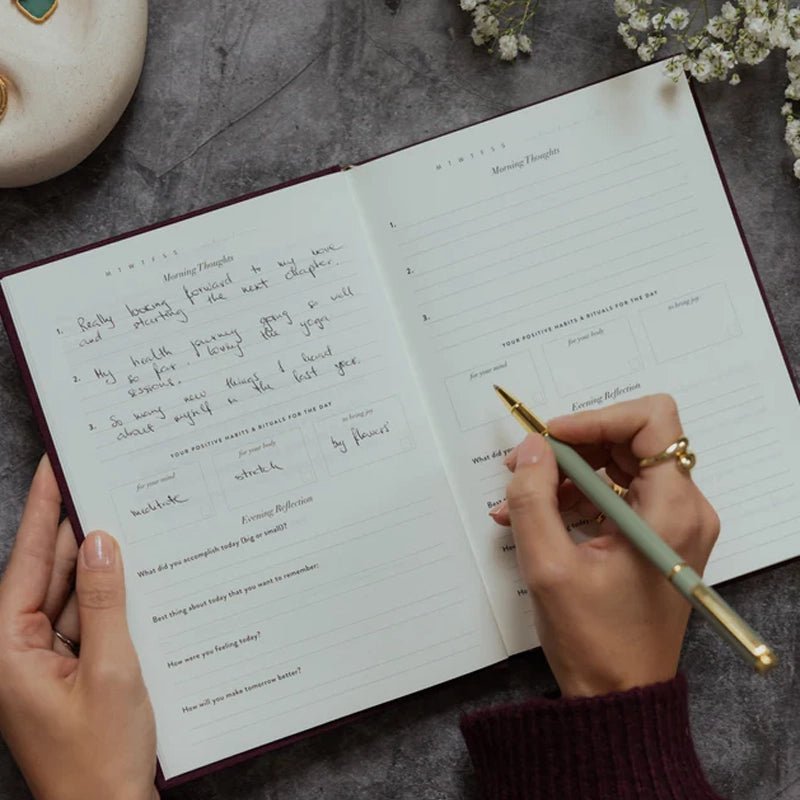 M T W T F S S
Morning Thoughts
1. Really looking forward to my move
and starting the next chapter.
2. My health journey going so well
so far. Loving the yoga
sessions.
3. So many new things I learnt
about myself in the last year.
YOUR POSITIVE HABITS & RITUALS FOR THE DAY
for your mind
meditate
for your body
stretch
to bring joy
by flowers
Evening Reflection
What did you accomplish today (big or small)?
Best thing about today that you want to remember:
How were you feeling today?
How will you make tomorrow better?
M T W T F S S
Morning Thoughts
1.
2.
3.
YOUR POSITIVE HABITS & RITUALS FOR THE DAY
for your mind
for your body
to bring joy
Evening Reflection
What did
Best